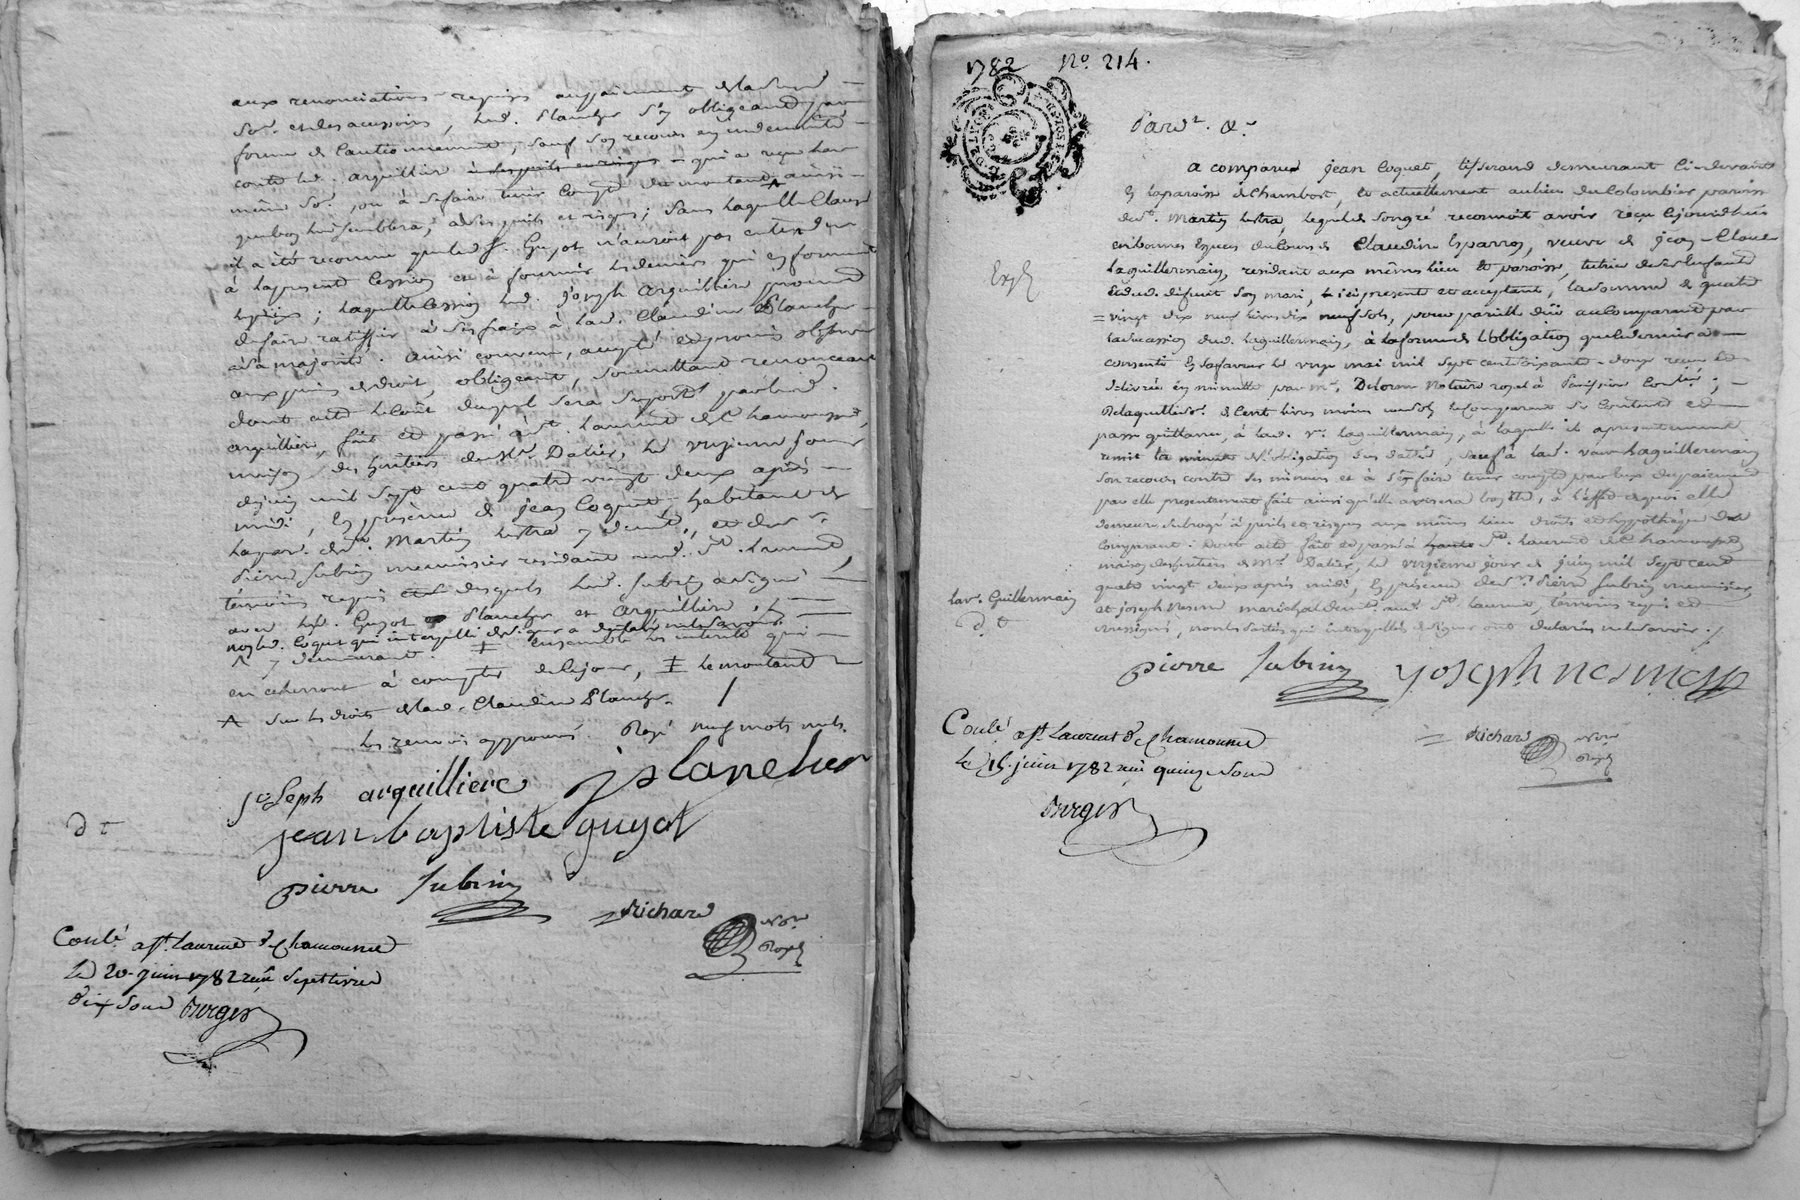 aux renonciations requises au payement de lad.
So.e et des accessoires, led. Plancher s'y obligeant par
forme de Cautionnement, sauf son recours en indemnité
contre led. arquilliere qui a reçu lad.
même So.e, ou à se faire tenir Compte du montant ainsi
que bon lui semblera, à ses perils et risques; sans laquelle Clause
il a été reconnu que led. Sr. Guyot n'auroit pas entendu
à la presente Cession et à fournir les deniers qui en forment
le prix; laquelle Cession led. joseph arquilliere promet
de faire ratiffier à ses fraix à lad. Claudine Plancher
à sa majorité. ainsi convenu, accepté et promis observer
aux peines de droit, obligeant, soumettant renonceant
dont acte le Coût duquel sera suporté par led.
arquilliere, fait et passé à St. laurent de Chamousset,
maison des heritiers de Mr. Dalier, le vingtieme jour
de juin mil sept cent quatre vingt deux après
midi, En presence de jean Coquet habitant de
la par. de St. Martin lestra y demt., et de sr.
Pierre jubin menuisier residant aud. St. laurent,
témoins requis desquels led. jubin a signé
avec lesd. Guyot Plancher et arquilliere,
non led. Coquet qui interpellé de signer a declaré ne le savoir.
y demeurant. ensemble les interets qui
en echerront à compter de ce jour, le montant
sur les droits de lad. Claudine Plancher.
les renvois approuvés. Rayé neuf mots nuls.
joseph arquilliere jplancher
jean baptiste guyot
dt
pierre jubin
Richard No.re Royal
Conlé. a St. laurent de Chamousset
le 20 juin 1782 reçu sept livres
dix sous Burger
1782 No. 214.
Pardt. &.
a comparu jean Coquet, tisserand demeurant Ci-devant
En la paroisse de Chambost, et actuellement au lieu du Colombier paroisse
de St. Martin lestra, lequel de son gré reconnoit avoir reçu cejourd'hui
en bonnes Especes du Cours de Claudine Esparron, veuve de jean-Claude
laguillermain, residant aux mêmes lieu et paroisse, tutrice de ses Enfants
Exp.
et dud. defunt son mari, ici presente et acceptant, la somme de quatre
vingt dix neuf livres dix neuf sols, pour pareille düe au Comparant par
la succession dud. laguillermain, à la forme de l'obligation que le dernier a
consentie En sa faveur le vingt mai mil sept cent soixante-douze reçue et
delivrée en minutte par me. Delorme Notaire royal à Panissiere Conlé.;
De laquelle So.e de Cent livres moins un sol le Comparant se Contente et
passe quittance, à lad. ve. laguillermain, à laquelle il a presentement
remis lad. obligation sus datée, sauf à lad. veuve laguillermain
son recours contre ses mineurs et à s'en faire tenir compte par eux du payement
par elle presentement fait ainsi qu'elle avisera bon être, à l'effet de quoi elle
demeure subrogée à perils et risques aux mêmes lieu droits et hypothéque du
Comparant. Dont acte fait et passé à St. laurent de Chamousset
maison des heritiers de Mr. Dalier, le vingtieme jour de juin mil sept cent
quatre vingt deux après midi, En presence de sr. Pierre jubin menuisier,
lave. Guillermain
dt
et joseph Nesme maréchal demt. aud. St. laurent, témoins requis et
soussignés, non les parties qui interpellées de signer ont declaré ne le savoir.
pierre jubin joseph nesme
Richard No.re Royal
Conlé a St. Laurent de Chamousset
le juin 1782 reçu quinze sous
Burger